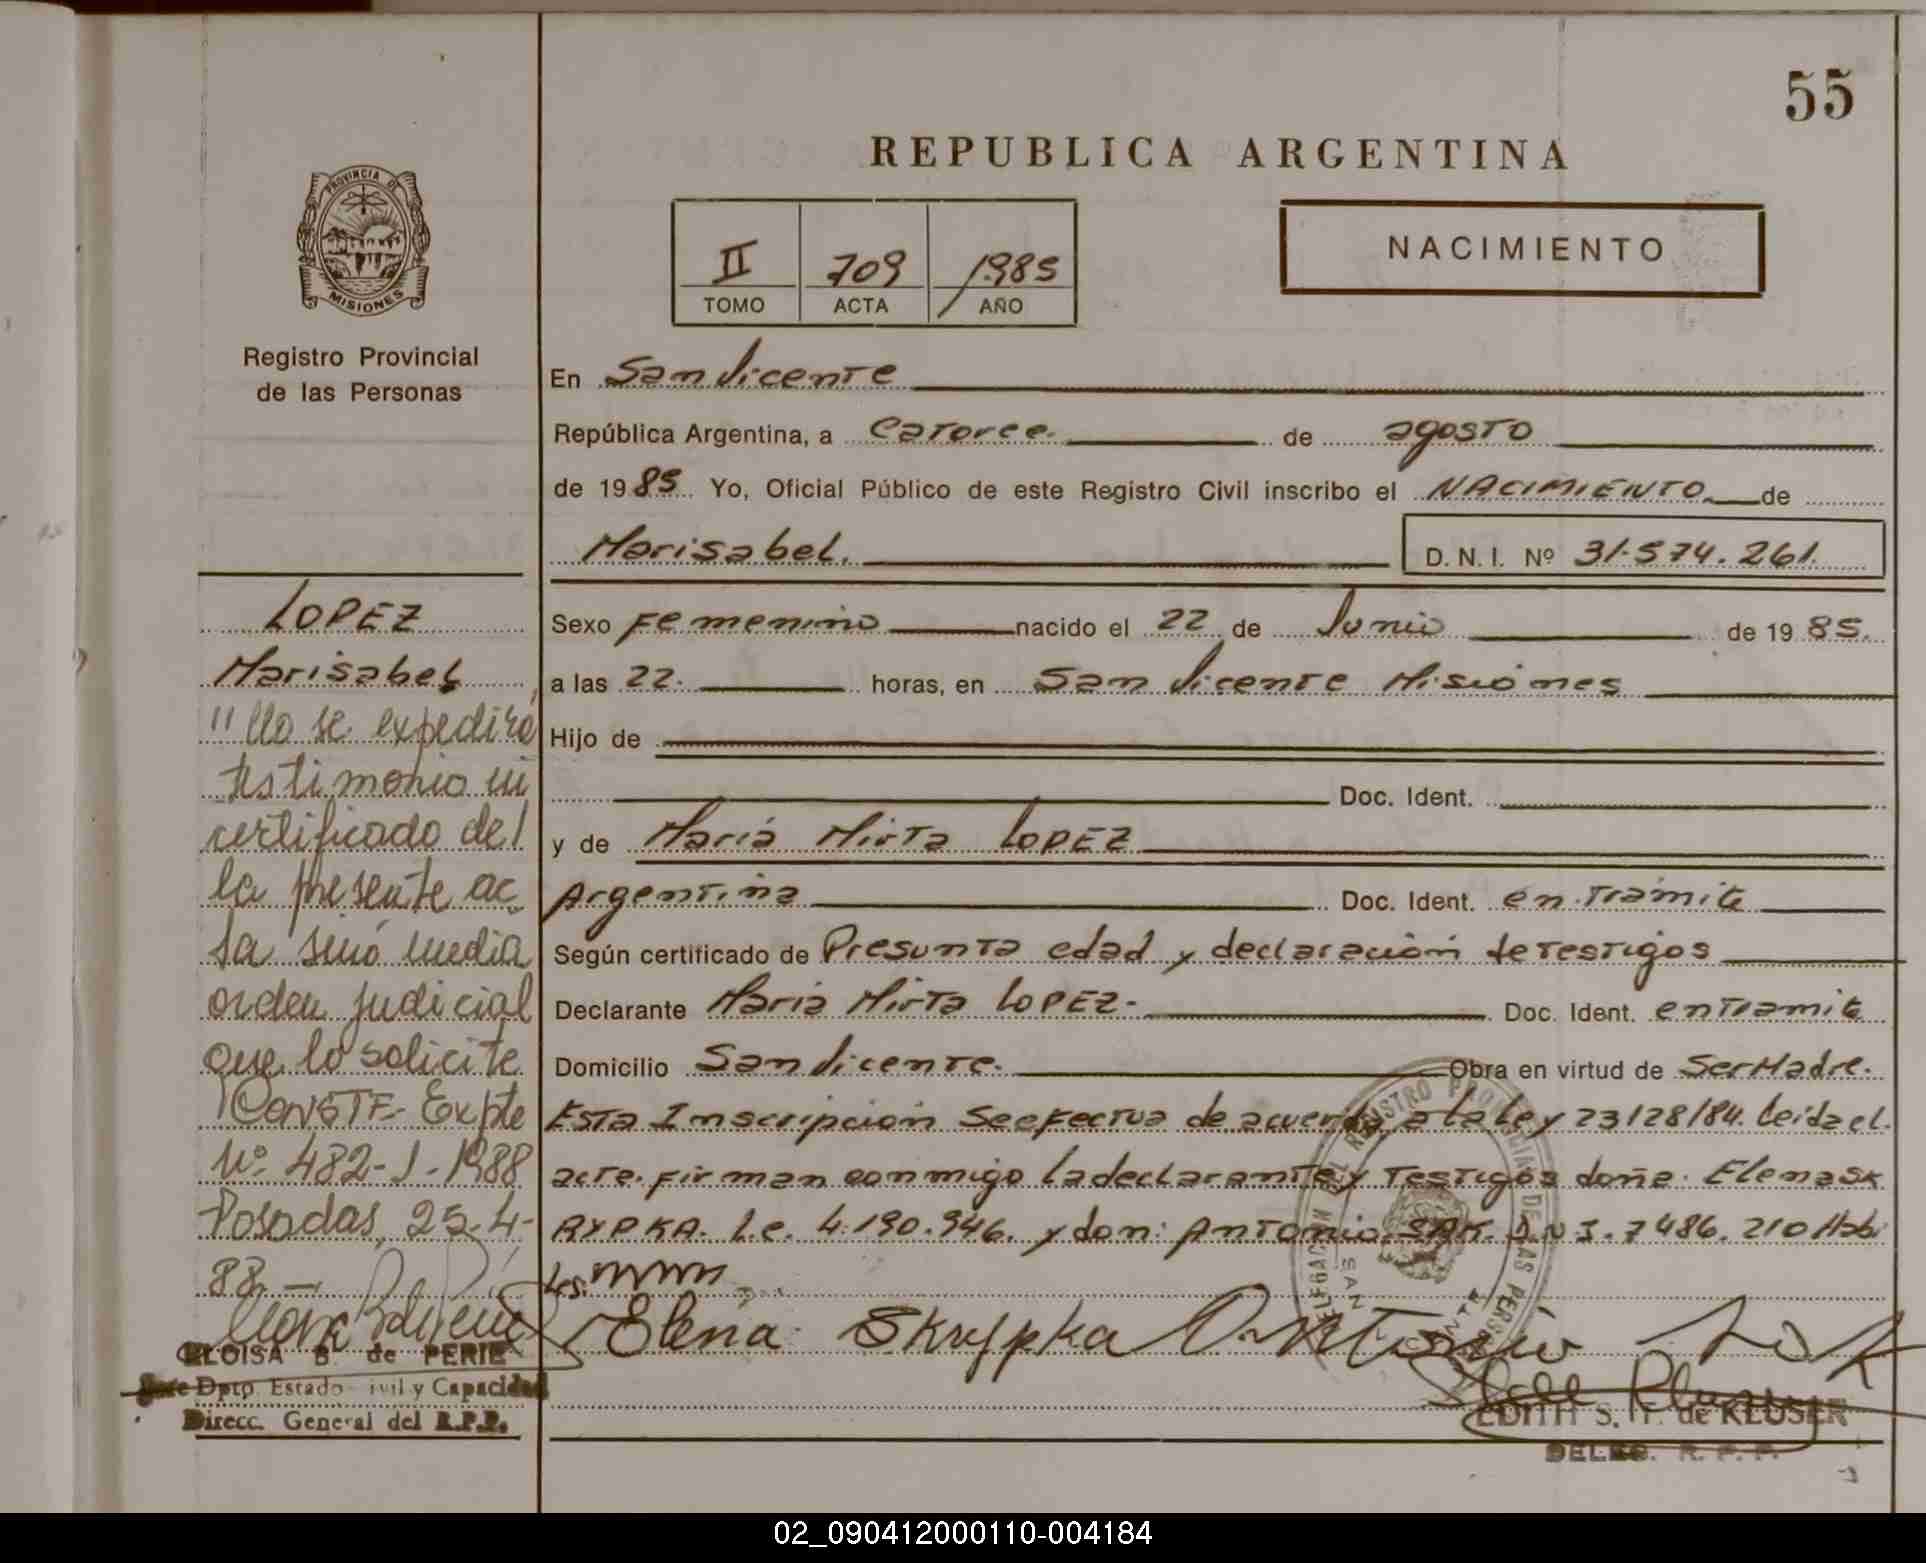 55
REPUBLICA ARGENTINA
PROVINCIA DE
MISIONES
Registro Provincial
de las Personas
II 709 1985
TOMO ACTA AÑO
NACIMIENTO
En San Vicente
República Argentina, a Catorce de agosto
de 1985 Yo, Oficial Público de este Registro Civil inscribo el NACIMIENTO de
Marisabel. D. N. I. Nº 31.574.261.
Sexo Femenino nacido el 22 de Junio de 1985.
a las 22. horas, en San Vicente Misiones
Hijo de
Doc. Ident.
y de María Mirta LOPEZ
Argentina Doc. Ident. en tramite
Según certificado de Presunta edad y declaración de testigos
Declarante María Mirta LOPEZ- Doc. Ident. en tramite
Domicilio San Vicente. Obra en virtud de Ser Madre.
Esta Inscripción se efectua de acuerdo a la Ley 23128/84. Leída el
acta. firman conmigo la declarante y Testigos doña. Elena SK
RYPKA. L.C. 4.190.946. y don: Antonio SAK. D.N.I. 7486.210 Habi
Les.
Elena Skrypka Antonio Sak
EDITH S. F. de KLUSER
DELEG. R. P. P.
LOPEZ
Marisabel
"No se expedirá
testimonio ni
certificado de
la presente ac-
ta sinó media
orden judicial
que lo solicite
CONSTE- Expte
Nº 482-J-1988
Posadas, 25-4-
88.-
ELOISA B. de PERIE
Jefe Dpto. Estado Civil y Capacidad
Direcc. General del R.P.P.
02_090412000110-004184